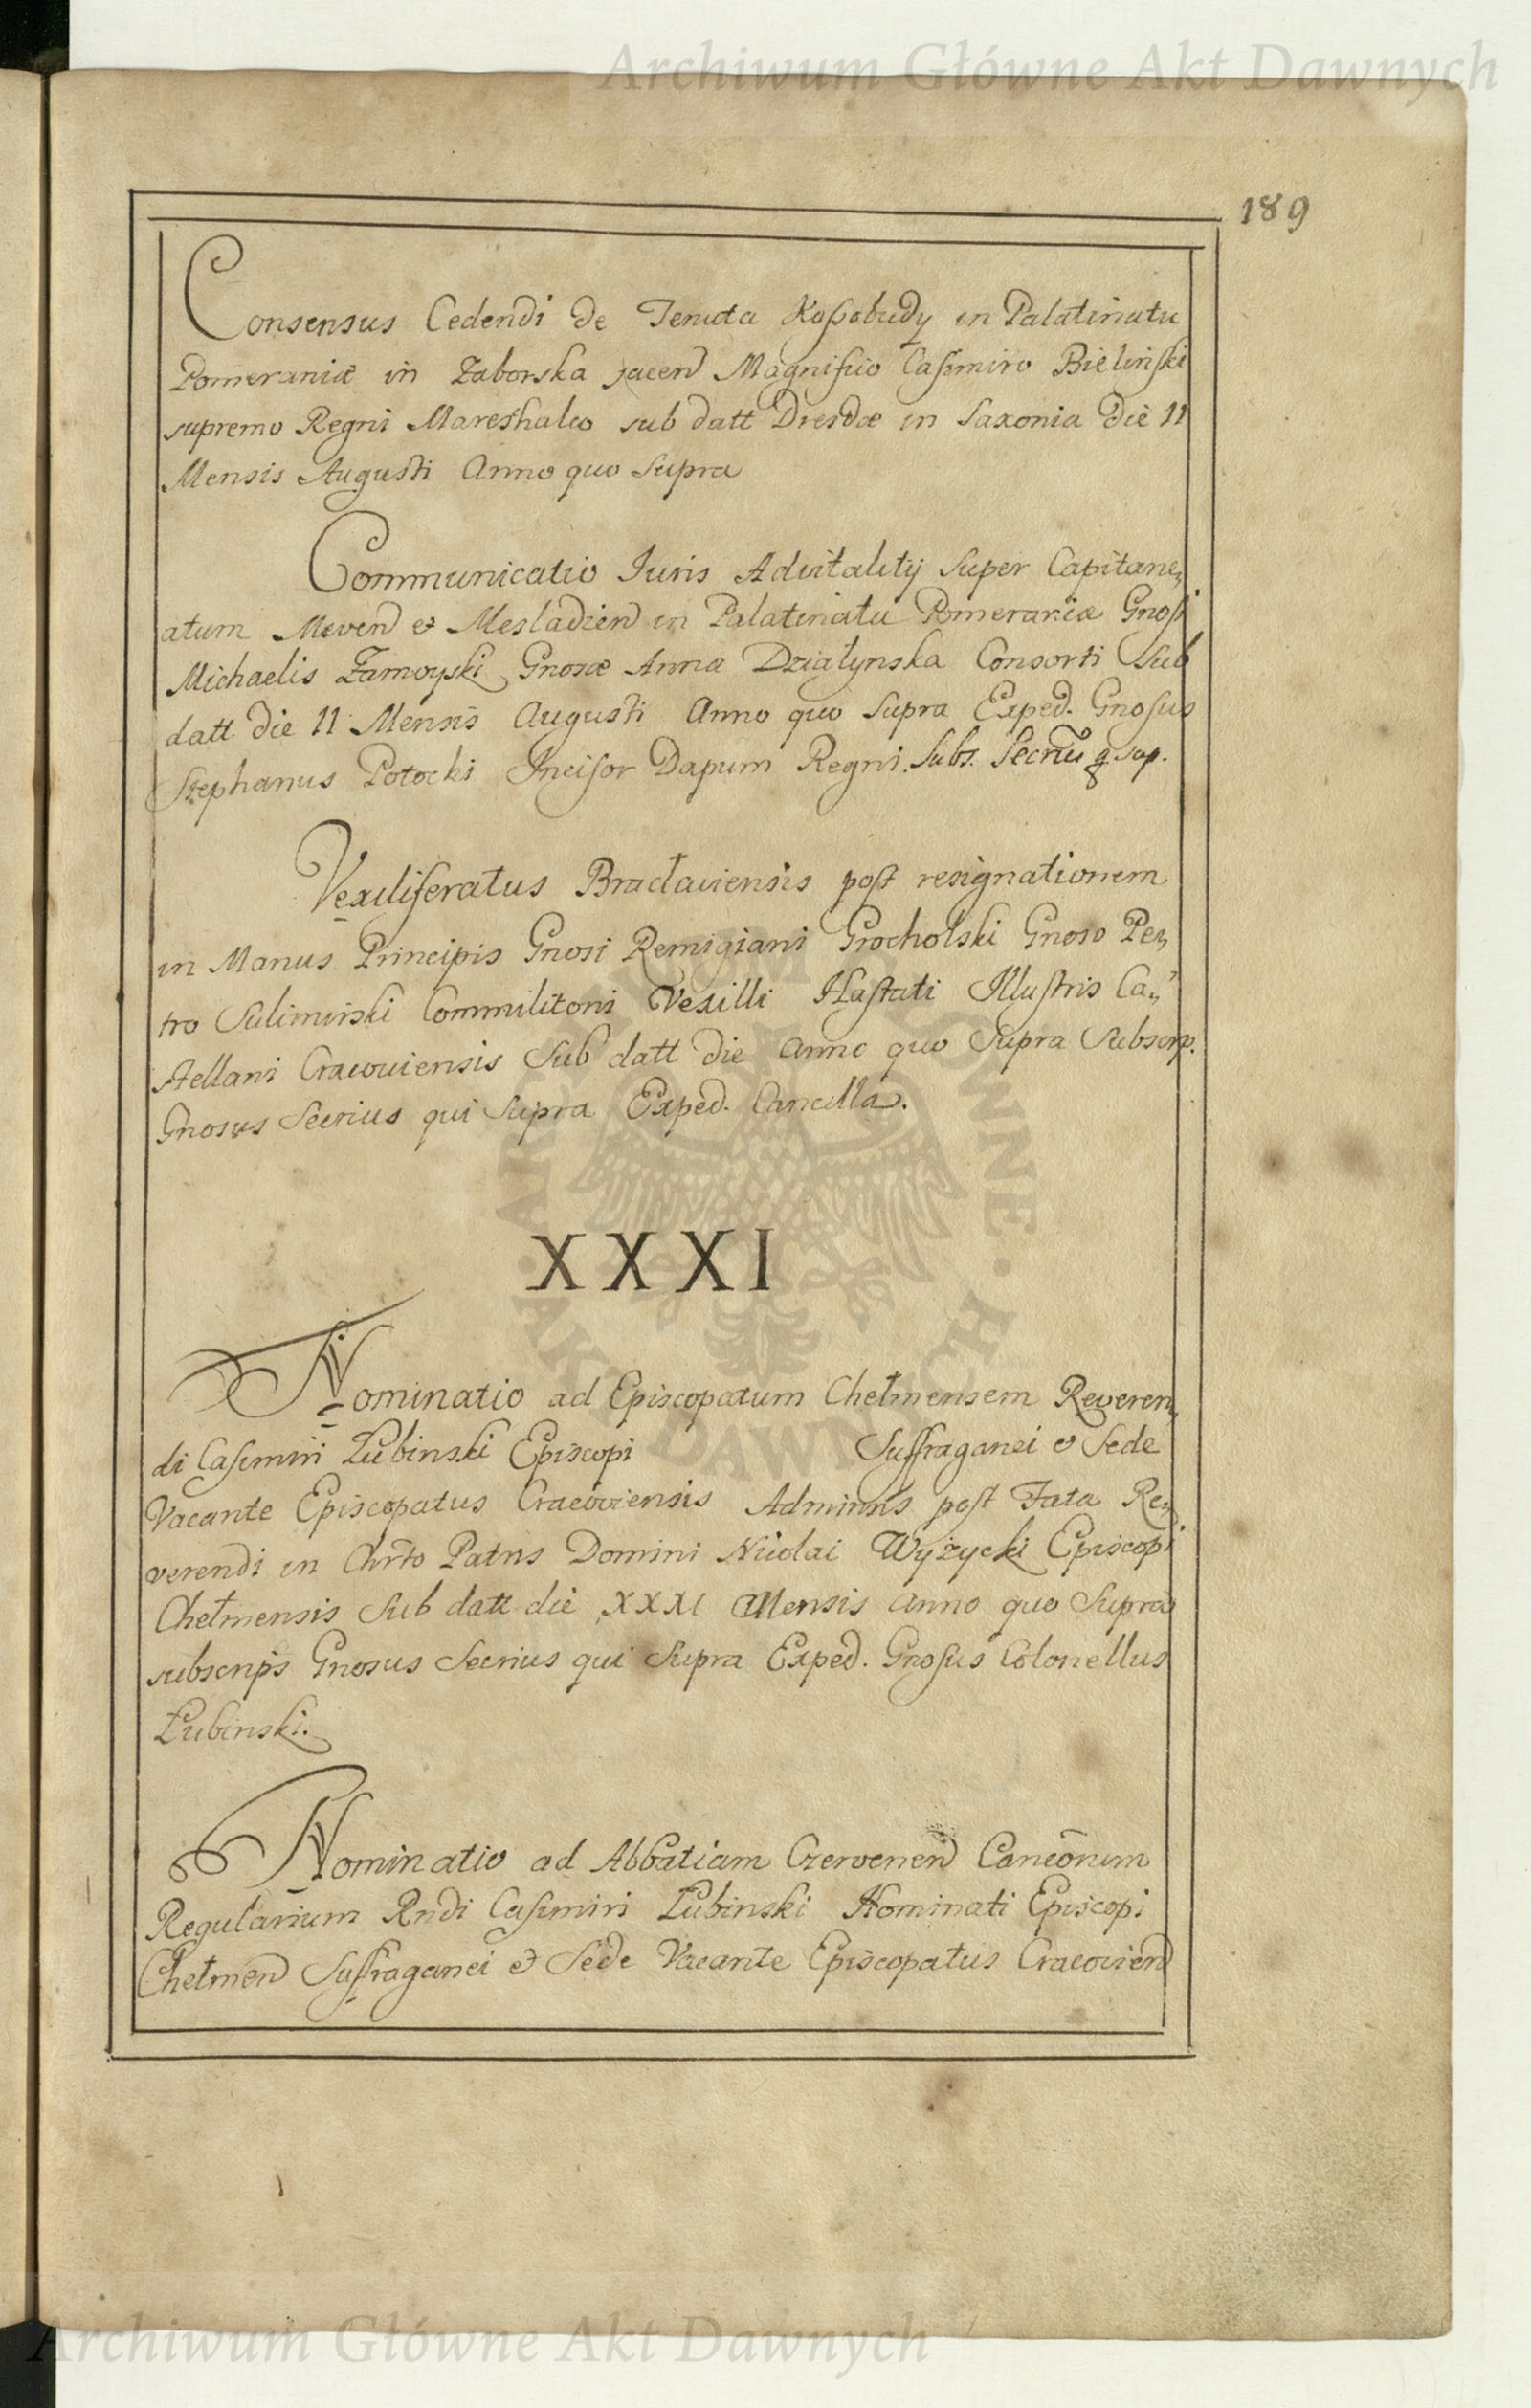 Archiwum Główne Akt Dawnych
189
Consensus Cedendi de Tenuta Kossobudy in Palatinatu
Pomeraniæ in Zaborska jacen Magnifico Casimiro Bielinski
supremo Regni Mareshalco sub datt Dresdæ in Saxonia die 11
Mensis Augusti Anno quo Supra
Communicatio Iuris Advitalitij Super Capitane,,
atum Meven et Mesladzien in Palatinatu Pomeraniæ Gnosi
Michaelis Zamoyski Gnosæ Anna Działynska Consorti Sub
datt die 11 Mensis Augusti Anno quo Supra Exped. Gnosus
Stephanus Potocki Incisor Dapum Regni. Subs. Secrius q. sup.
Vexiliferatus Bracłaviensis post resignationem
in Manus Principis Gnosi Remigiani Grocholski Gnoso Pe,,
tro Sulimirski Commilitoni Vexilli Hastati Illustris Ca,,
stellani Cracoviensis Sub datt die Anno quo Supra Subscrip.
Gnosus Secrius qui Supra Exped. Cancella.
XXXI
Nominatio ad Episcopatum Chełmensem Reveren,,
di Casimiri Łubinski Episcopi Suffraganei et Sede
Vacante Episcopatus Cracoviensis Adminris post Fata Re,,
verendi in Chrto Patris Domini Nicolai Wyżycki Episcopi
Chełmensis Sub datt die XXXI Mensis Anno quo Supra
subscrips Gnosus Secrius qui Supra Exped. Gnosus Colonellus
Łubinski.
Nominatio ad Abbatiam Czervenen Canconum
Regularium Rndi Casimiri Łubinski Nominati Episcopi
Chełmen Suffraganei et Sede Vacante Episcopatus Cracovien
ARCHIWUM GŁÓWNE · AKT DAWNYCH ·
Archiwum Główne Akt Dawnych